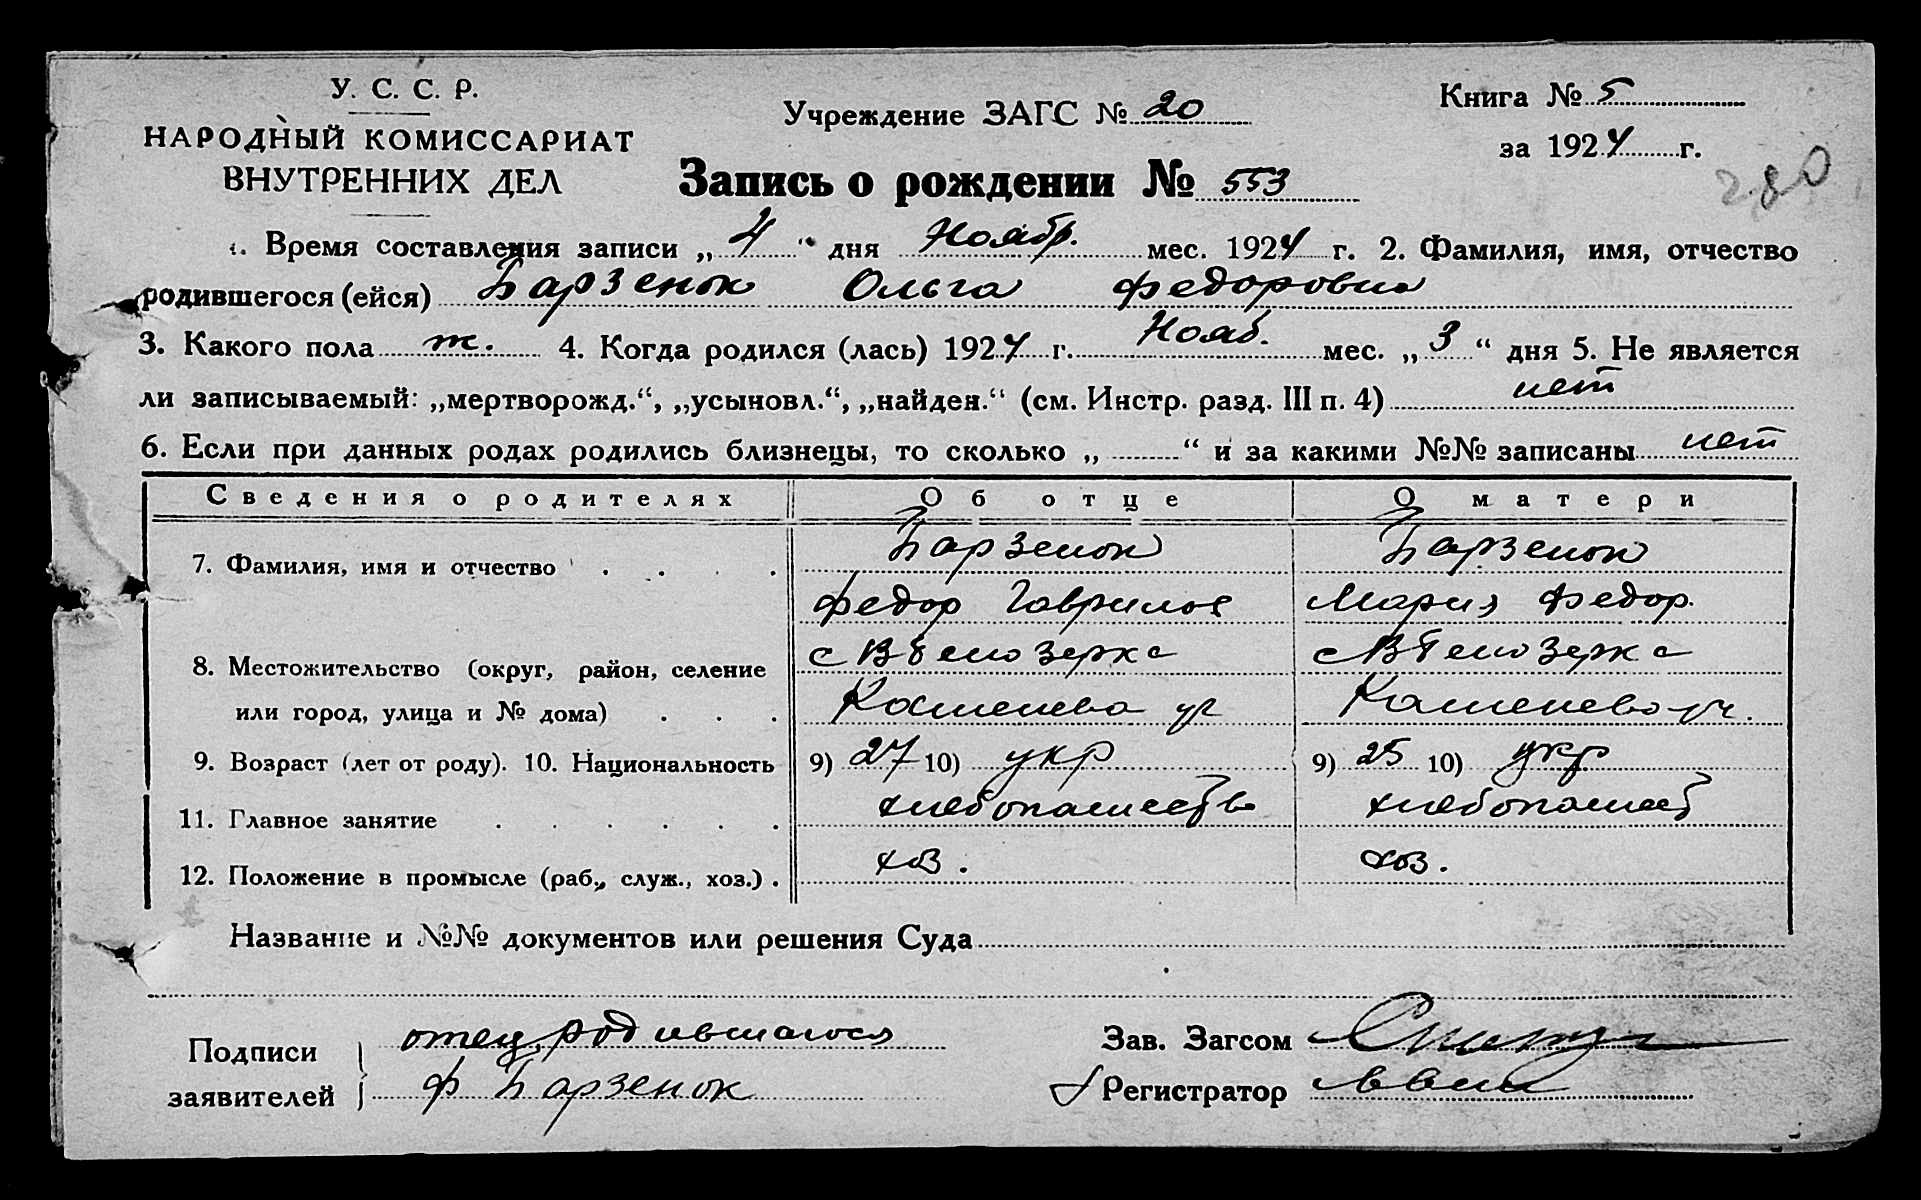 У. С. С. Р.
НАРОДНЫЙ КОМИССАРИАТ
ВНУТРЕННИХ ДЕЛ
Учреждение ЗАГС № 20
Книга № 5
за 1924 г.
280
Запись о рождении № 553
1. Время составления записи „ 4 “ дня Ноябр. мес. 1924 г. 2. Фамилия, имя, отчество
родившегося (ейся) Барзенок Ольга Федоровна
3. Какого пола ж. 4. Когда родился (лась) 1924 г. Нояб. мес. „ 3 “ дня 5. Не является
ли записываемый: „мертворожд.“, „усыновл.“, „найден.“ (см. Инстр. разд. III п. 4) нет
6. Если при данных родах родились близнецы, то сколько „ “ и за какими №№ записаны нет
Сведения о родителях Об отце О матери
7. Фамилия, имя и отчество Барзенок Барзенок
Федор Гаврилов Мария Федор.
8. Местожительство (округ, район, селение с Белозерка с Белозерка
или город, улица и № дома) ул ул.
9. Возраст (лет от роду). 10. Национальность 9) 27 10) укр 9) 25 10) укр
11. Главное занятие хлебопашеств хлебопашест
12. Положение в промысле (раб., служ., хоз.) хоз. хоз.
Название и №№ документов или решения Суда
Подписи заявителей
отец родившагося
Ф Барзенок
Зав. Загсом
Регистратор